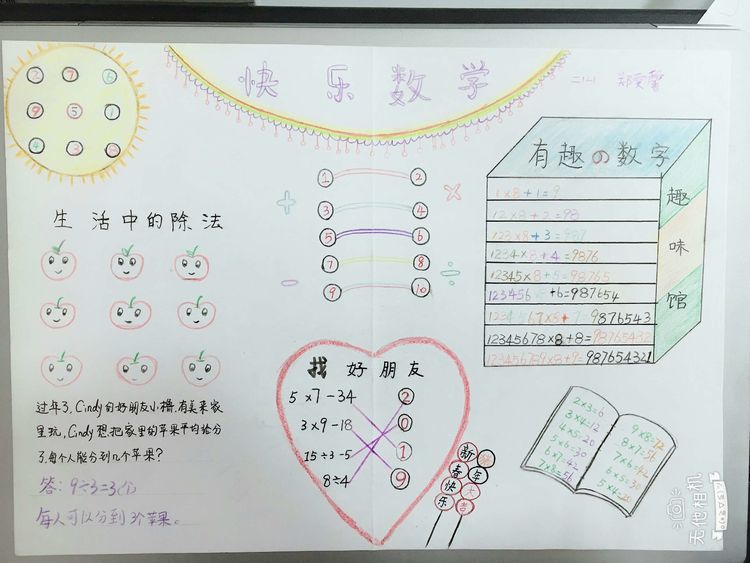 快乐数学
2 7 6
9 5 1
4 3 8
生活中的除法
过年了,Cindy的好朋友小攒,有美来家
里玩,Cindy想把家里的苹果平均给分
了,每个人能分到几个苹果?
答:9÷3=3(个)
每人可以分到3个苹果。
1 2
3 4
5 6
7 8
9 10
+ × - ÷
有趣の数字
1×8+1=9
12×8+2=98
123×8+3=987
1234×8+4=9876
12345×8+5=98765
123456×8+6=987654
1234567×8+7=9876543
12345678×8+8=98765432
123456789×8+9=987654321
趣味馆
找好朋友
5×7-34 2
3×9-18 0
15÷3-5 1
8÷4 9
新春快乐
年大吉
2×3=6
3×4=12
4×5=20
5×6=30
6×7=42
7×8=56
9×8=72
8×7=56
7×6=42
6×5=30
5×4=20
无他相机